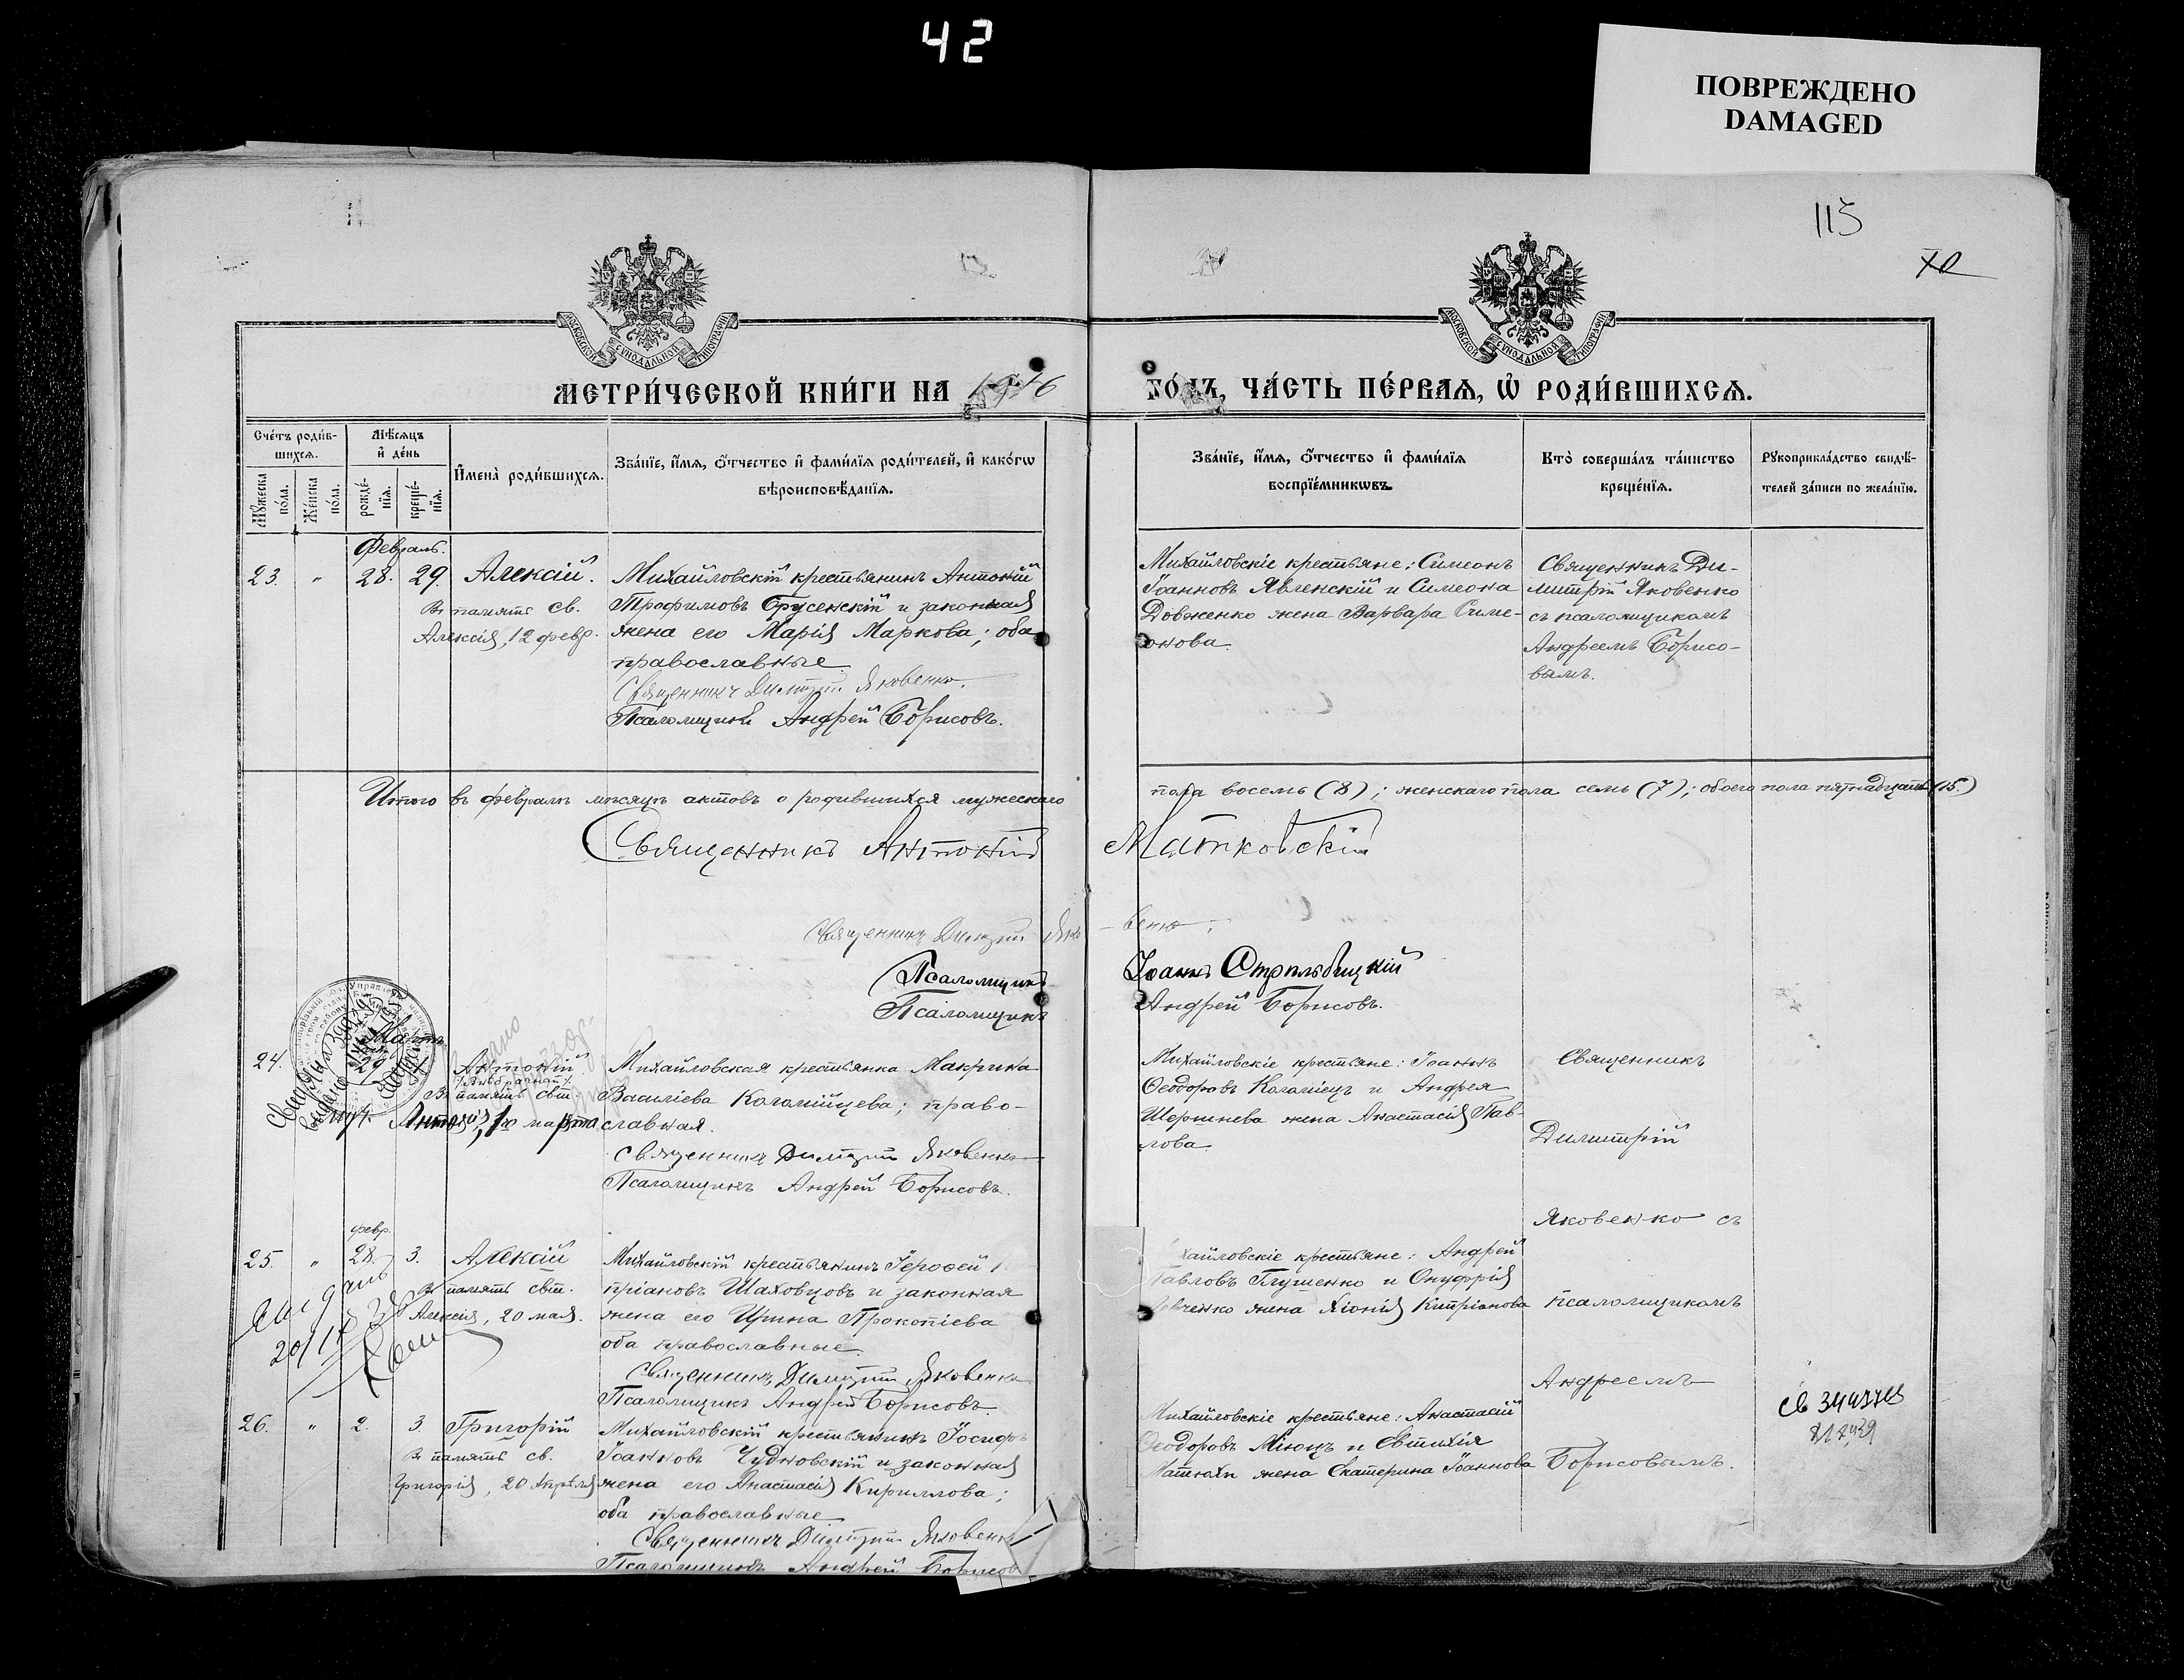 42
ПОВРЕЖДЕНО
DAMAGED
115
МОСКОВСКОЙ СѴНОДАЛЬНОЙ ТИПОГРАФІИ
МОСКОВСКОЙ СѴНОДАЛЬНОЙ ТИПОГРАФІИ
МЕТРИ́ЧЕСКОЙ КНИ́ГИ НА 1916 ГО́ДЪ, ЧА́СТЬ ПЕ́РВАЯ, Ѡ҆ РОДИ́ВШИХСЯ.
Сче́тъ роди́в-
шихся.
Мѣ́сяцъ
и҆ де́нь
Мꙋ́жеска
по́ла.
Же́нска
по́ла.
рожде́-
нїя.
креще́-
нїя.
И҆мена̀ роди́вшихся.
Зва́нїе, и҆́мя, ѻ҆́тчество и҆ фами́лїя роди́телей, и҆ како́гѡ
вѣроисповѣ́данїя.
Зва́нїе, и҆́мя, ѻ҆́тчество и҆ фами́лїя
воспрїе́мникѡвъ.
Кто̀ соверша́лъ та́инство
креще́нїя.
Рꙋкоприкла́дство свидѣ́-
телей за́писи по жела́нїю.
Февраль.
23. " 28. 29. Алексій.
Въ память св.
Алексія, 12 февр.
Михайловскій крестьянинъ Антоній
Трофимовъ Брусенскій и законная
жена его Марія Маркова; оба
православные.
Священникъ Димитрій Яковенко.
Псаломщикъ Андрей Борисовъ.
Михайловскіе крестьяне: Симеонъ
Іоанновъ Явленскій и Симеона
Довженко жена Варвара Симе-
онова.
Священникъ Ди-
митрій Яковенко
съ псаломщикомъ
Андреемъ Борисо-
вымъ.
Итого въ февралѣ мѣсяцѣ актовъ о родившихся мужескаго пола восемь (8); женскаго пола семь (7); обоего пола пятнадцать (15.)
Священникъ Антоній Матковскій
Священникъ Димитрій Яковенко.
Псаломщикъ Іоаннъ Стрѣльбицкій
Псаломщикъ Андрей Борисовъ.
Мартъ
24. 29 Антоній
Въ память свт.
Антонія, 1го марта
Михайловская крестьянка Макрина
Василіева Коломійцева; право-
славная.
Священникъ Димитрій Яковенко
Псаломщикъ Андрей Борисовъ.
Михайловскіе крестьяне: Іоаннъ
Ѳеодоровъ Коломіецъ и Андрея
Шершнева жена Анастасія Пав-
лова.
Священникъ
Димитрій
Яковенко съ
псаломщикомъ
Андреемъ
Борисовымъ.
февр.
25. " 28. 3. Алексій
Въ память свт.
Алексія, 20 мая.
Михайловскій крестьянинъ Іерофей
пріановъ Шаховцовъ и законная
жена его Ирина Прокопіева
оба православные.
Священникъ Димитрій Яковенко
Псаломщикъ Андрей Борисовъ.
хайловскіе крестьяне: Андрей
Павловъ Глущенко и Онуфрія
жена Хіонія Кипріанова
26. " 2. 3. Григорій
Въ память св.
Григорія, 20 Апрѣля
Михайловскій крестьянинъ Іосифъ
Іоанновъ Чудновскій и законная
жена его Анастасія Кириллова;
оба православные
Священникъ Димитрій Яковенко
Псаломщикъ Андрей Борисов
Михайловскіе крестьяне: Анастасій
Ѳеодоровъ Міюцъ и Евтихія
Матюхи жена Екатерина Іоаннова